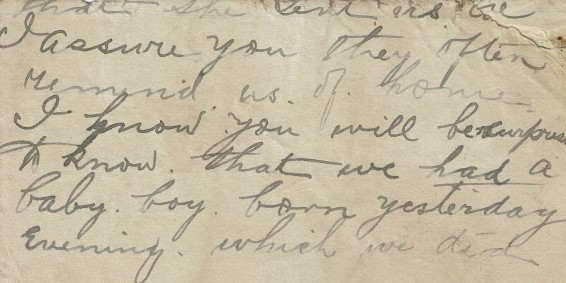 that she sent us are
I assure you they often
remind us. of. home.
I know you will be surprise
to know. that we had a
baby. boy. born yesterday
Evening. which we did